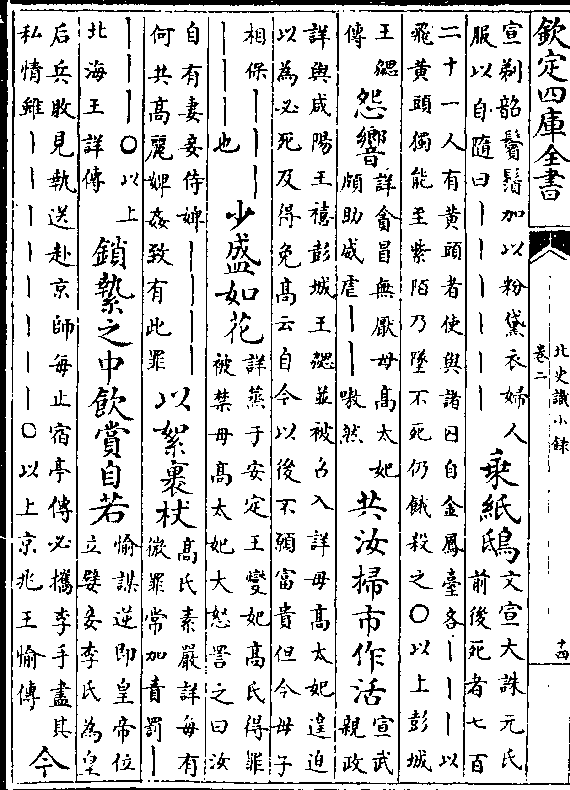 欽定四庫全書
北史識小録
卷二
十四
宣剃韶鬢鬚加以粉黛衣婦人
服以自隨曰丨丨丨丨丨
乗紙鴟
文宣大誅元氏
前後死者七百
二十一人有黄頭者使與諸囚自金鳳臺各丨丨丨以
飛黄頭獨能至紫陌乃墜不死仍餓殺之〇以上彭城
王勰
傳
怨響
詳貪冒無厭母高太妃
頗助威虐丨丨嗷然
共汝掃市作活
宣武
親政
詳與咸陽王禧彭城王勰並被召入詳母高太妃遑迫
以為必死及得免高云自今以後不願富貴但令母子
相保丨丨丨丨
丨丨丨丨也
少盛如花
詳蒸于安定王燮妃高氏得罪
被禁母高太妃大怒詈之曰汝
自有妻妾侍婢丨丨丨丨
何共高麗婢姦致有此罪
以絮裹杖
高氏素嚴詳每有
微罪常加責罰丨
丨丨丨〇以上
北海王詳傳
鎖縶之中飲賞自若
愉謀逆即皇帝位
立嬖妾李氏為皇
后兵敗見執送赴京師每止宿亭傳必攜李手盡其
私情雖丨丨丨丨丨丨丨丨〇以上京兆王愉傳
今